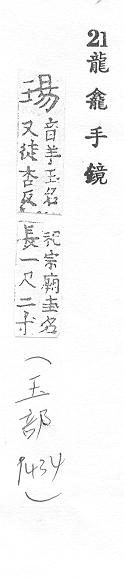 21龍龕手鏡
瑒
音羊玉名
又徒杏反
祀宗廟圭名
長一尺二寸
(玉部
p434)